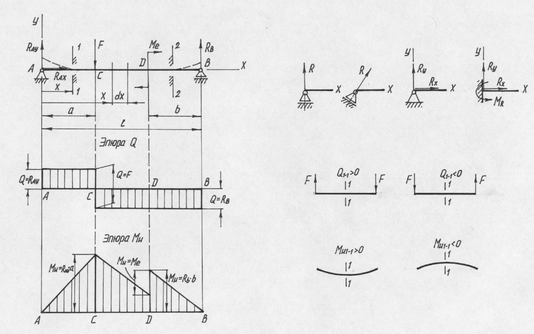 y
R_Ay
1
F
Me
2
R_B
A
R_Ax
C
D
B
x
x
1
x
dx
2
a
b
ℓ
Эпюра Q
Q=R_Ay
Q=F
Q=R_B
A
C
D
B
Эпюра Mи
Mи=Me
Mи=R_B·b
A
C
D
B
R
x
R
x
y
Ry
Rx
x
y
Ry
Rx
x
M_R
F
Q₁₋₁>0
F
1
1
F
Q₁₋₁<0
F
1
1
Mи₁₋₁>0
1
1
Mи₁₋₁<0
1
1